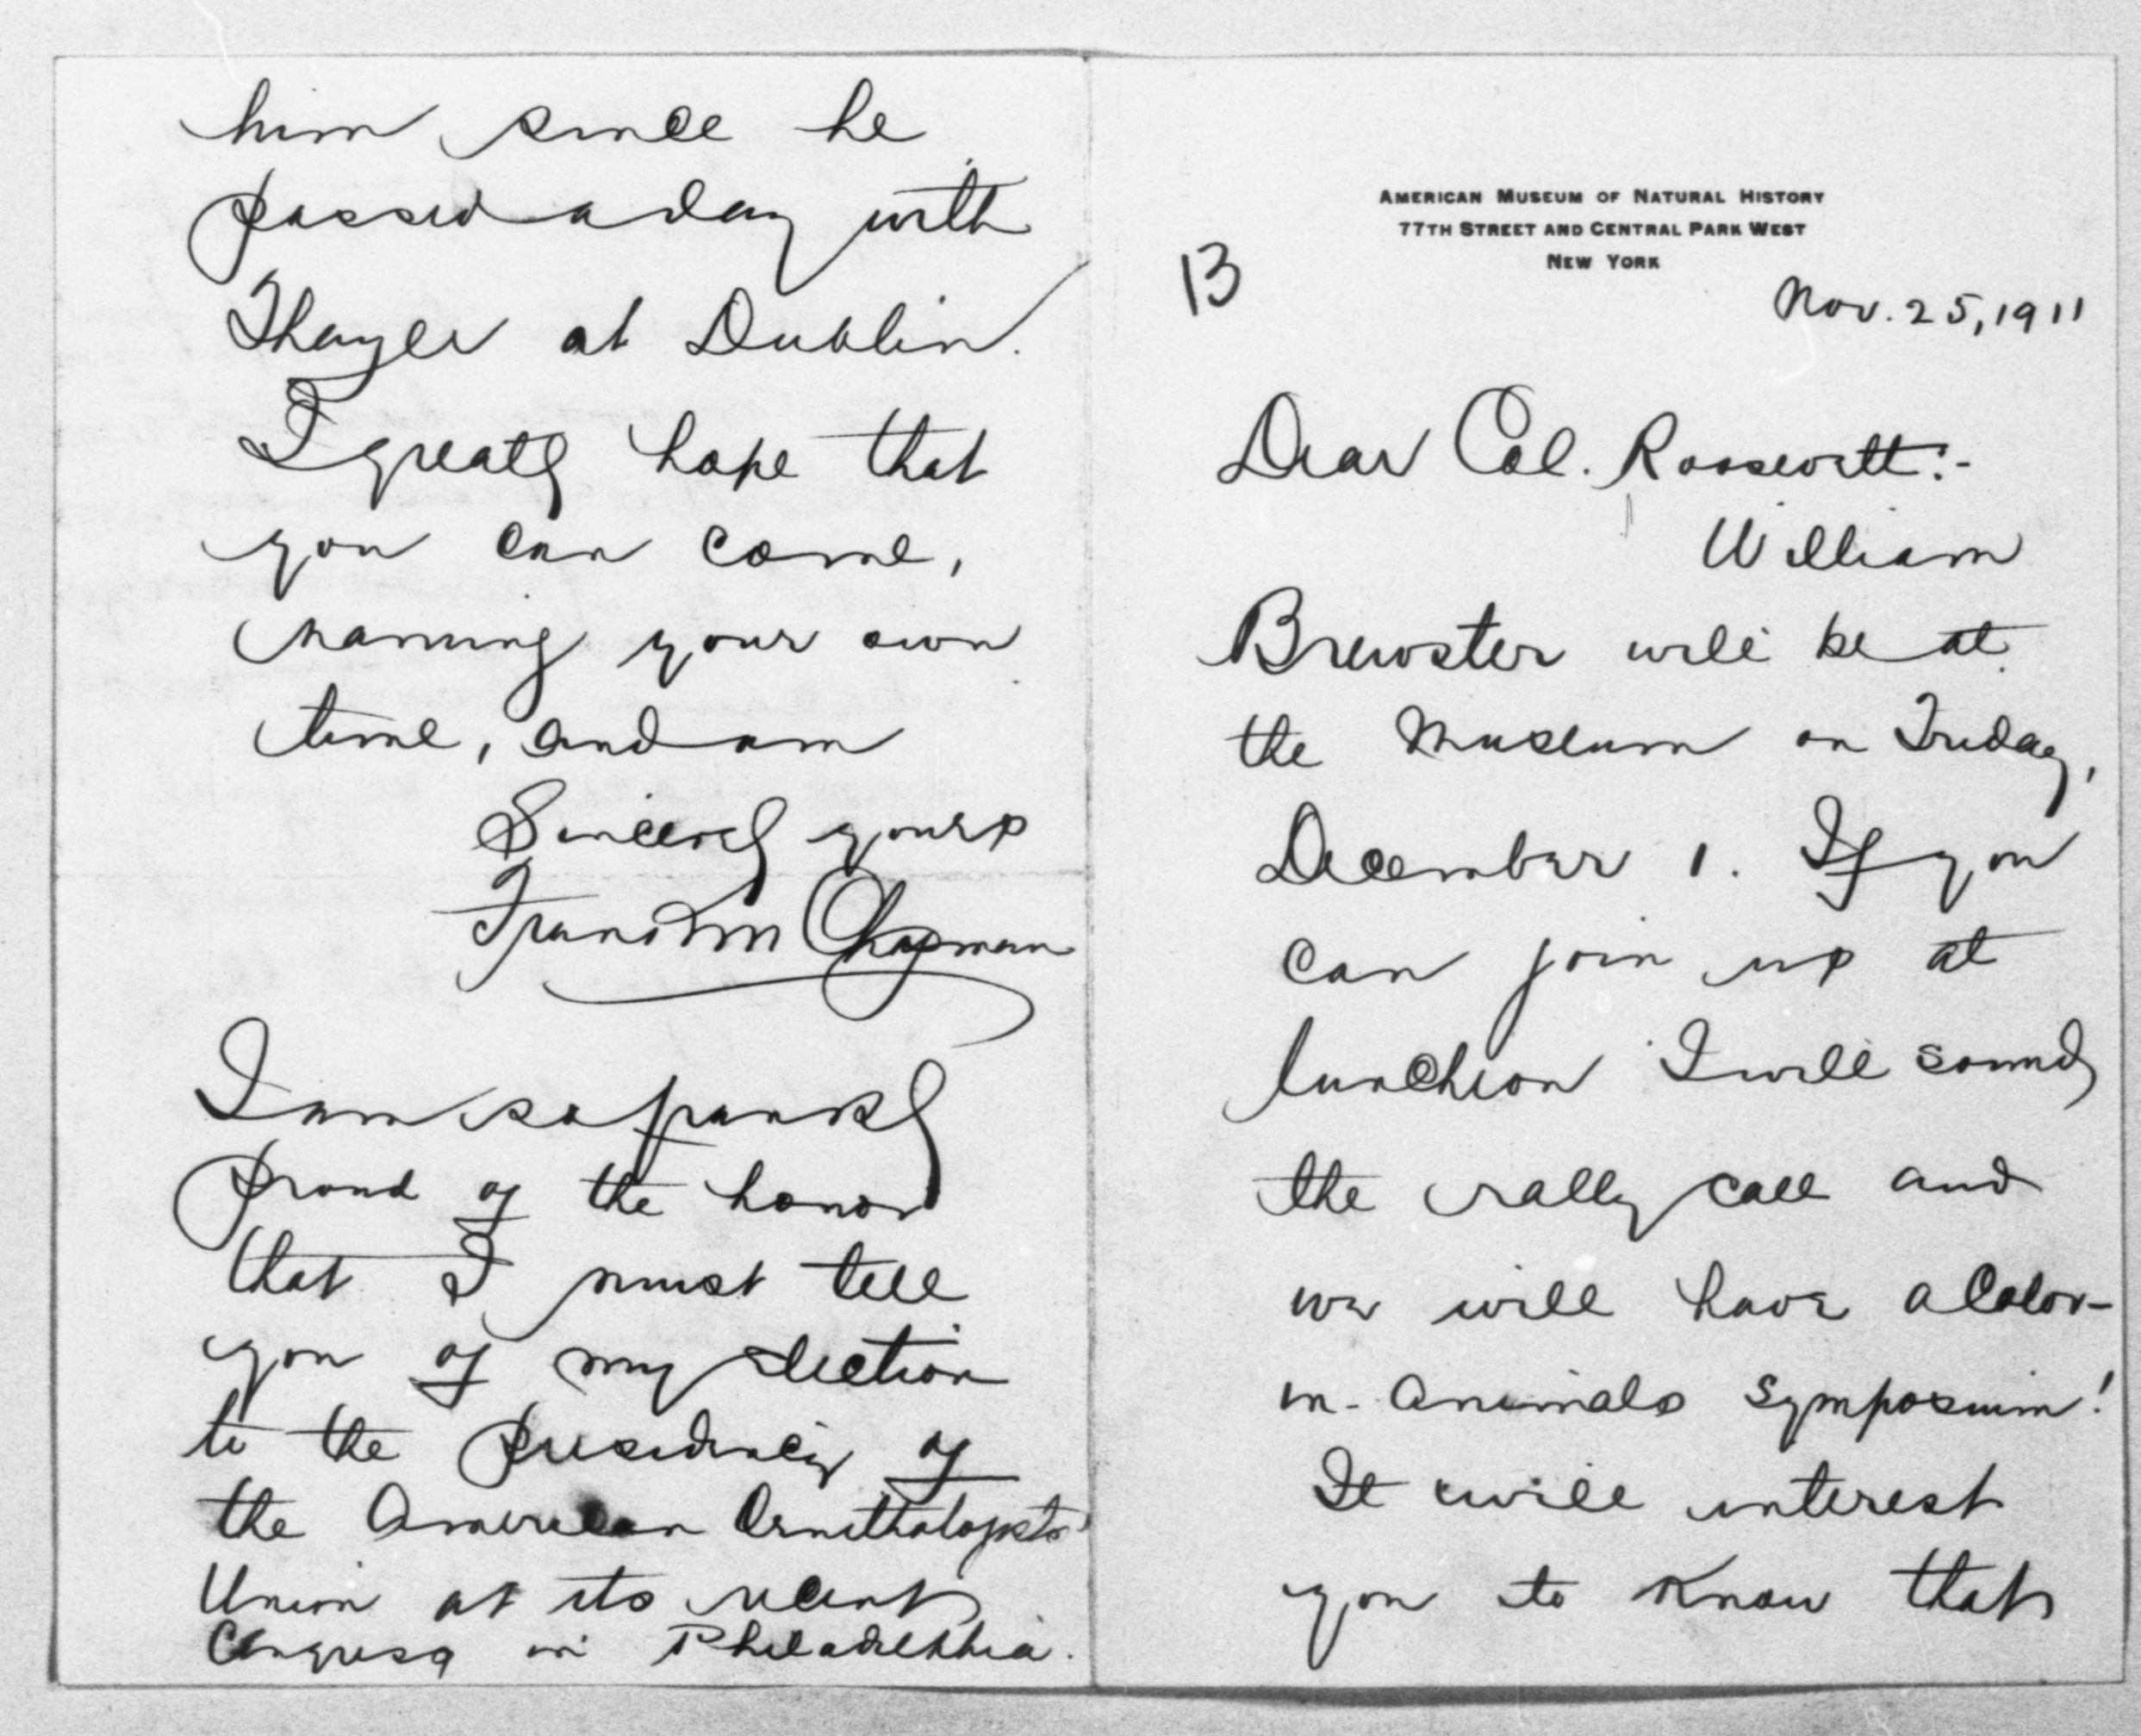 AMERICAN MUSEUM OF NATURAL HISTORY
77TH STREET AND CENTRAL PARK WEST
NEW YORK
13
Nov. 25, 1911
Dear Col. Roosevelt:-
William
Brewster will be at
the Museum on Friday,
December 1. If you
can join us at
luncheon I will sound
the rally call and
we will have a Color-
in-Animals Symposium!
It will interest
you to know that
him since he
passed a day with
Thayer at Dublin.
I greatly hope that
you can come,
naming your own
time, and am
Sincerely yours
Frank M Chapman
I am so frankly
proud of the honor
that I must tell
you of my election
to the Presidency of
the American Ornithologists'
Union at its recent
Congress in Philadelphia.